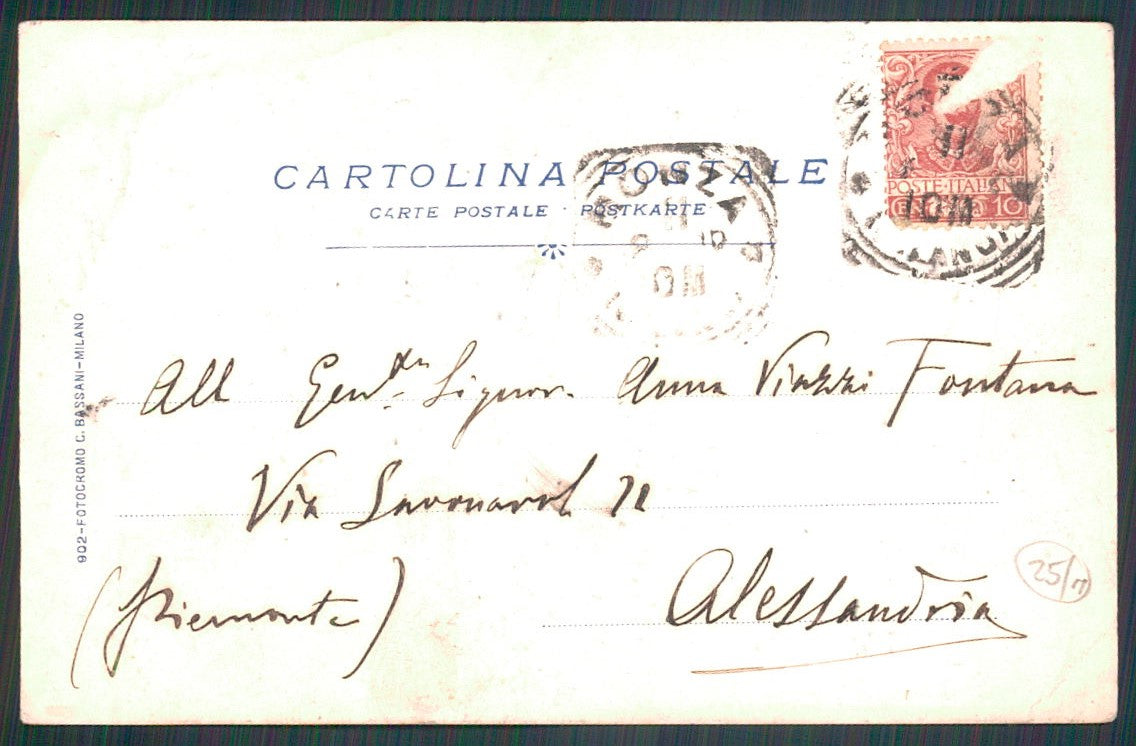 CARTOLINA POSTALE
CARTE POSTALE · POSTKARTE
POSTE·ITALIANE
10
MONZA
10M
10M
902-FOTOCROMO C. BASSANI-MILANO
All Signor. Anna Viazzi Fontana
Via Savonarol
(Piemonte)
Alessandria
25/